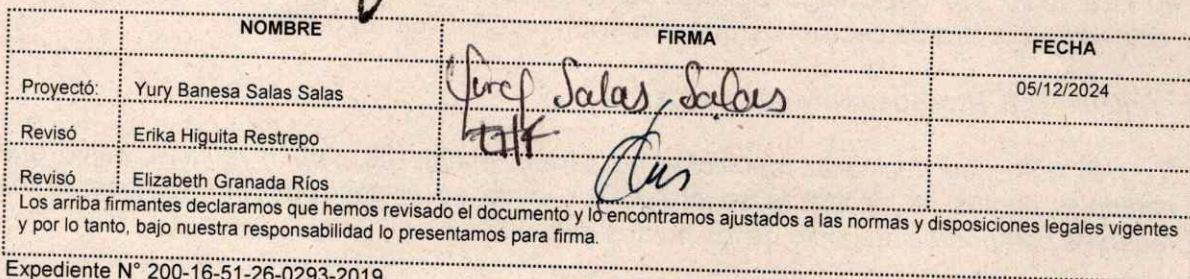 NOMBRE FIRMA FECHA
Proyectó: Yury Banesa Salas Salas Yury Salas Salas 05/12/2024
Revisó Erika Higuita Restrepo
Revisó Elizabeth Granada Ríos
Los arriba firmantes declaramos que hemos revisado el documento y lo encontramos ajustados a las normas y disposiciones legales vigentes
y por lo tanto, bajo nuestra responsabilidad lo presentamos para firma.
Expediente N° 200-16-51-26-0293-2019